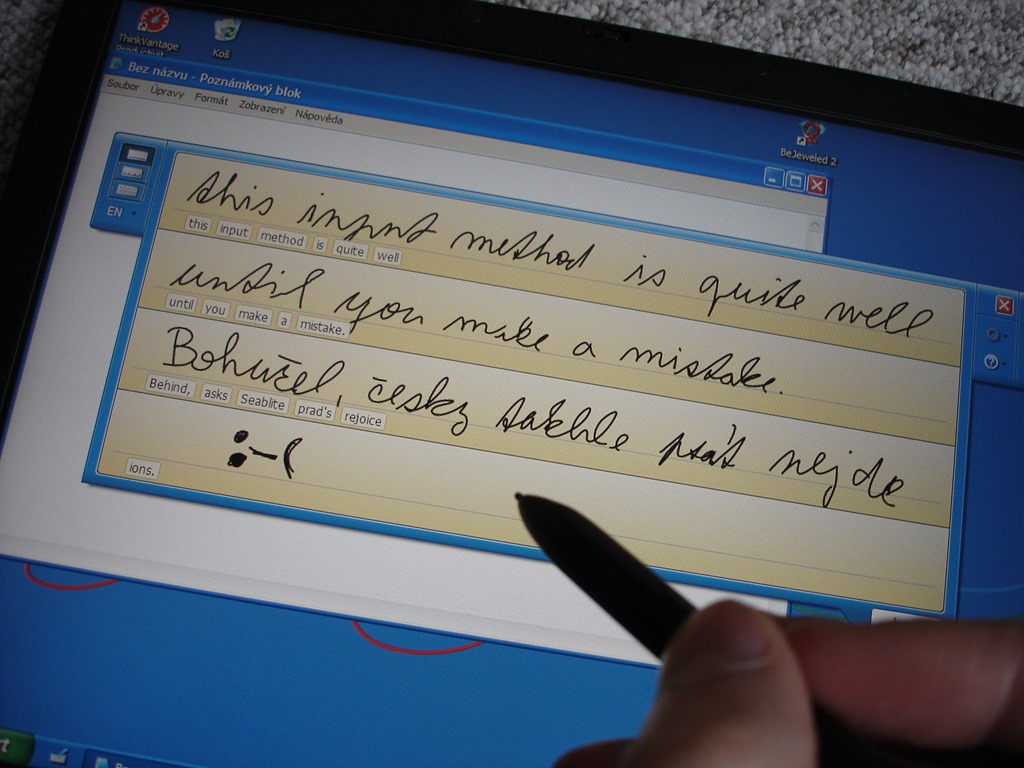 ThinkVantage
Koš
Bez názvu - Poznámkový blok
Soubor Úpravy Formát Zobrazení Nápověda
BeJeweled 2
EN
this input method is quite well
this input method is quite well
until you make a mistake.
until you make a mistake.
Bohužel, česky takhle psát nejde
Behind, asks Seablite prad's rejoice
:-(
ions.